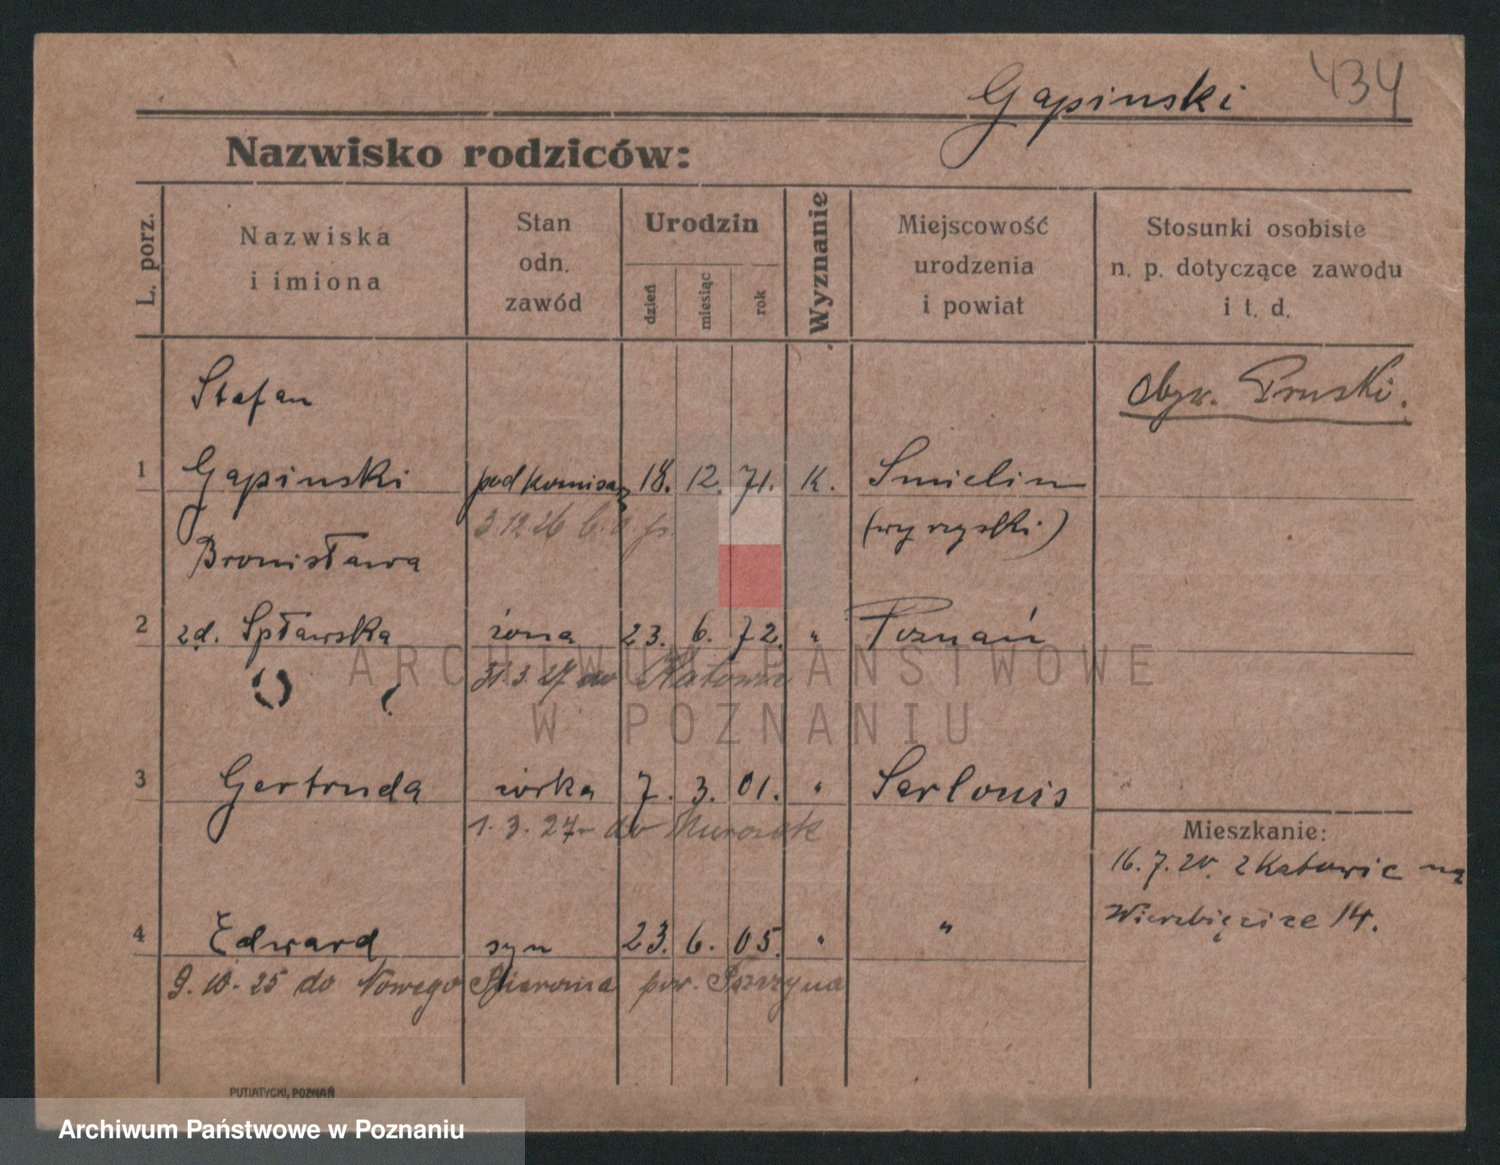 434
Gapinski
Nazwisko rodziców:
L. porz.
Nazwiska
i imiona
Stan
odn.
zawód
Urodzin
dzień
miesiąc
rok
Wyznanie
Miejscowość
urodzenia
i powiat
Stosunki osobiste
n. p. dotyczące zawodu
i t. d.
Stefan
obyw. Pruski.
1 Gapinski podkomisarz 18. 12. 71. K. Smielin
3.12.26
(wyrzyski)
Bronisława
2 zd. Spławska żona 23. 6. 72. " Poznań
31.3.27 do Katowic
ARCHIWUM PAŃSTWOWE
W POZNANIU
3 Gertruda córka 7. 3. 01. " Sarlouis
1.3.27 do Murcek
Mieszkanie:
16.7.20. z Katowic na
Wierzbięcice 14.
4 Edward syn 23. 6. 05. " "
9.10.25 do Nowego Bierunia pow. Pszczyna
PUTIATYCKI, POZNAŃ
Archiwum Państwowe w Poznaniu